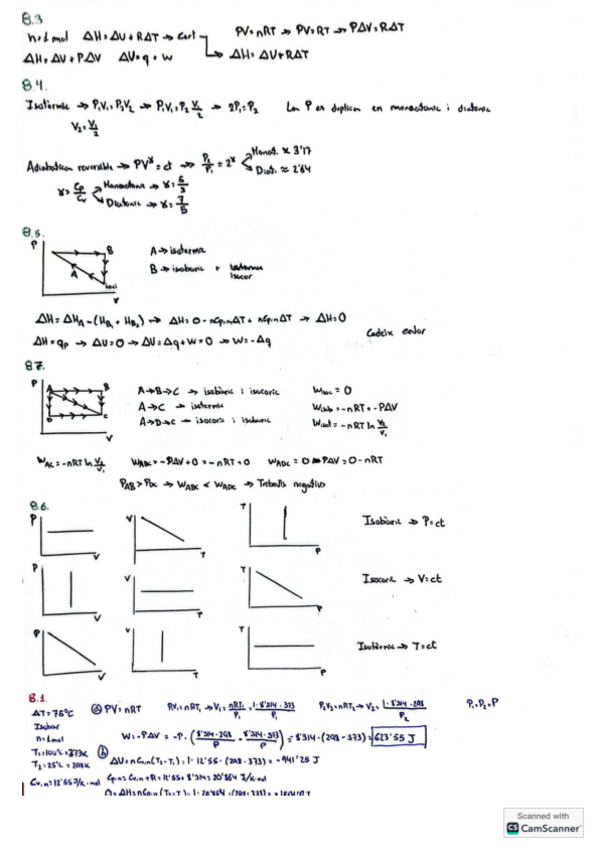 8.3.
n=1mol ΔH=ΔU+RΔT → cert PV=nRT → PV=RT → PΔV=RΔT
ΔH=ΔU+PΔV ΔU=q+w → ΔH=ΔU+RΔT
8.4.
Isotèrmic → P₁V₁=P₂V₂ → P₁V₁=P₂ V₁/2 → 2P₁=P₂ Les P es dupliquen en monoatomic i diatomic
V₂=V₁/2
Adiabatica reversible → PV^γ=ct → P₂/P₁=2^γ Monoat. ≈ 3'17
Diat. ≈ 2'64
γ=Cp/Cv Monoatomic → γ=5/3
Diatomic → γ=7/5
8.5.
P B A V
A → isoterma
B → isobaric + isocor
ΔH=ΔH_A-(H_B₁+H_B₂) → ΔH=0-nCp,mΔT+nCp,mΔT → ΔH=0
ΔH=qp → ΔU=0 → ΔU=Δq+W=0 → W=-Δq
8.7.
P A B D C V
A→B→C → isobàric i isocoric W =0
A→C → isotermic W =-nRT=-PΔV
A→D→C → isocoric i isobaric W =-nRT ln V₂/V₁
W_AC=-nRT ln V₂/V₁ W_ABC=-PΔV+0=-nRT+0 W_ADC=0-PΔV=0-nRT
P_AB>P_DC → W_ABC<W_ADC → Treballs negatius
8.6.
P V V T T P Isobàric → P=ct
P V V T T P Isocoric → V=ct
P V V T T P Isotèrmic → T=ct
8.1.
ΔT=75°C ⓐ PV=nRT P₁V₁=nRT₁ → V₁=nRT₁/P₁=1·8'314·373/P₁ P₂V₂=nRT₂ → V₂=1·8'314·298/P₂ P₁=P₂=P
Isobar
n=1mol W=-PΔV=-P·(8'314·298/P - 8'314·373/P)=-8'314·(298-373)=623'55 J
T₁=100°C=373K ⓑ
T₂=25°C=298K ΔU=nCv,m(T₂-T₁)=1·12'55·(298-373)=-941'25 J
Cv,m=12'55 J/K·mol Cp,m=Cv,m+R=12'55+8'314=20'864 J/K·mol
Scanned with
CS CamScanner